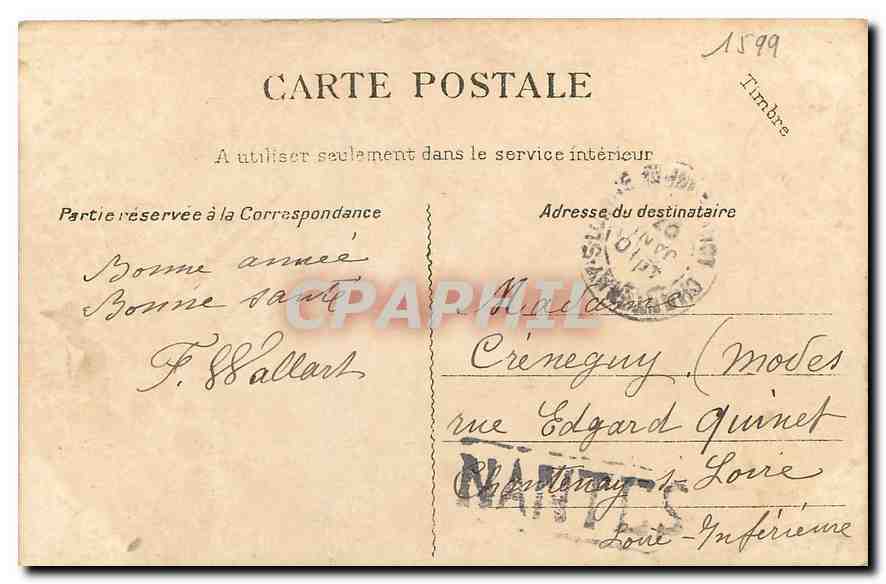 1599
CARTE POSTALE
Timbre
A utiliser seulement dans le service intérieur
Partie réservée à la Correspondance
Bonne année
Bonne santé
F. Wallart
Adresse du destinataire
Madame
Créneguy (Modes
rue Edgard Quinet
Chantenay s- Loire
Loire-Inférieure
NANTES
CPAPHIL